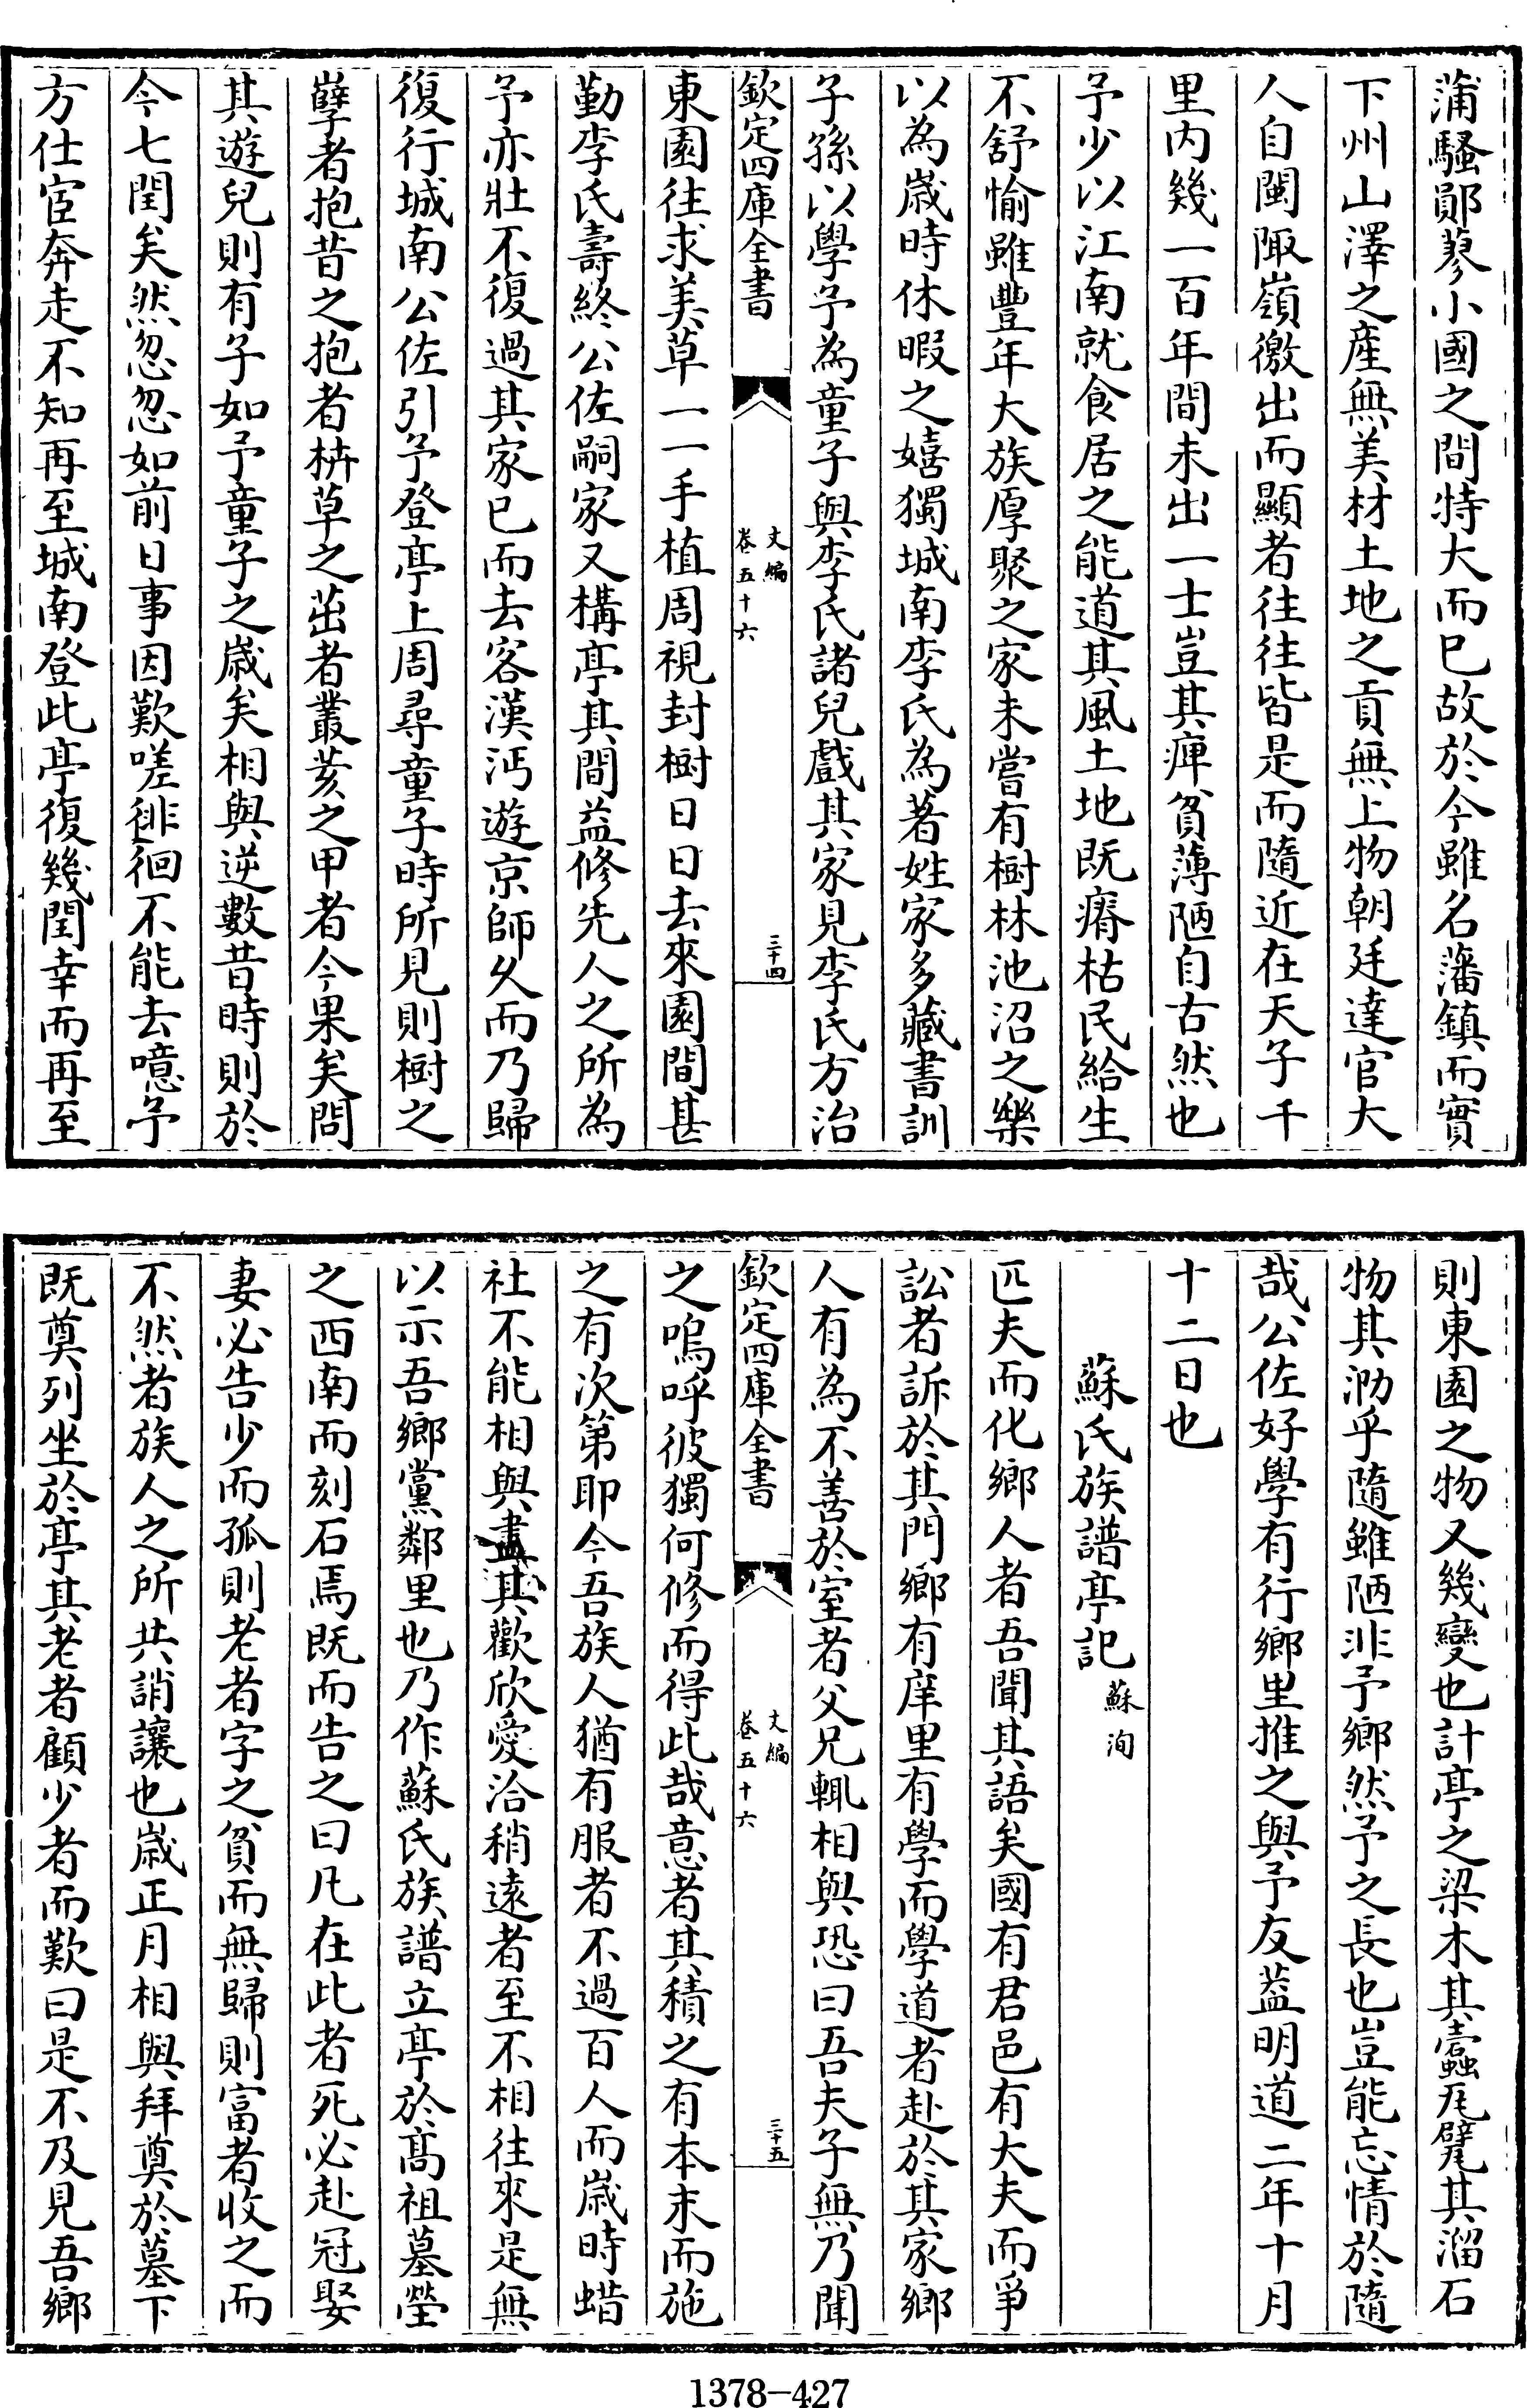 蒲騷鄖蓼小國之間特大而已故於今雖名藩鎮而實
下州山澤之產無美材土地之貢無上物朝廷達官大
人自閩陬嶺徼出而顯者往往皆是而隨近在天子千
里内幾一百年間未出一士豈其痺貧薄陋自古然也
予少以江南就食居之能道其風土地既瘠枯民給生
不舒愉雖豐年大族厚聚之家未嘗有樹林池沼之樂
以為嵗時休暇之嬉獨城南李氏為著姓家多藏書訓
子孫以學予為童子與李氏諸兒戲其家見李氏方治
欽定四庫全書
文編
卷五十六
三十四
東園往求美草一一手植周視封樹日日去來園間甚
勤李氏壽終公佐嗣家又構亭其間益修先人之所為
予亦壯不復過其家已而去客漢沔遊京師久而乃歸
復行城南公佐引予登亭上周尋童子時所見則樹之
孽者抱昔之抱者枿草之茁者叢荄之甲者今果矣問
其遊兒則有子如予童子之嵗矣相與逆數昔時則於
今七閏矣然忽忽如前日事因歎嗟徘徊不能去噫予
方仕宦奔走不知再至城南登此亭復幾閏幸而再至
則東園之物又幾變也計亭之梁木其蠧瓦甓其溜石
物其泐乎隨雖陋非予鄉然予之長也豈能忘情於隨
哉公佐好學有行鄉里推之與予友葢明道二年十月
十二日也
蘇氏族譜亭記 蘇洵
匹夫而化鄉人者吾聞其語矣國有君邑有大夫而爭
訟者訴於其門鄉有庠里有學而學道者赴於其家鄉
人有為不善於室者父兄輒相與恐曰吾夫子無乃聞
欽定四庫全書
文編
卷五十六
三十五
之嗚呼彼獨何修而得此哉意者其積之有本末而施
之有次第即今吾族人猶有服者不過百人而嵗時蜡
社不能相與盡其歡欣愛洽稍遠者至不相往來是無
以示吾鄉黨鄰里也乃作蘇氏族譜立亭於髙祖墓塋
之西南而刻石焉既而告之曰凡在此者死必赴冠娶
妻必告少而孤則老者字之貧而無歸則富者收之而
不然者族人之所共誚讓也嵗正月相與拜奠於墓下
既奠列坐於亭其老者顧少者而歎曰是不及見吾鄉
1378-427